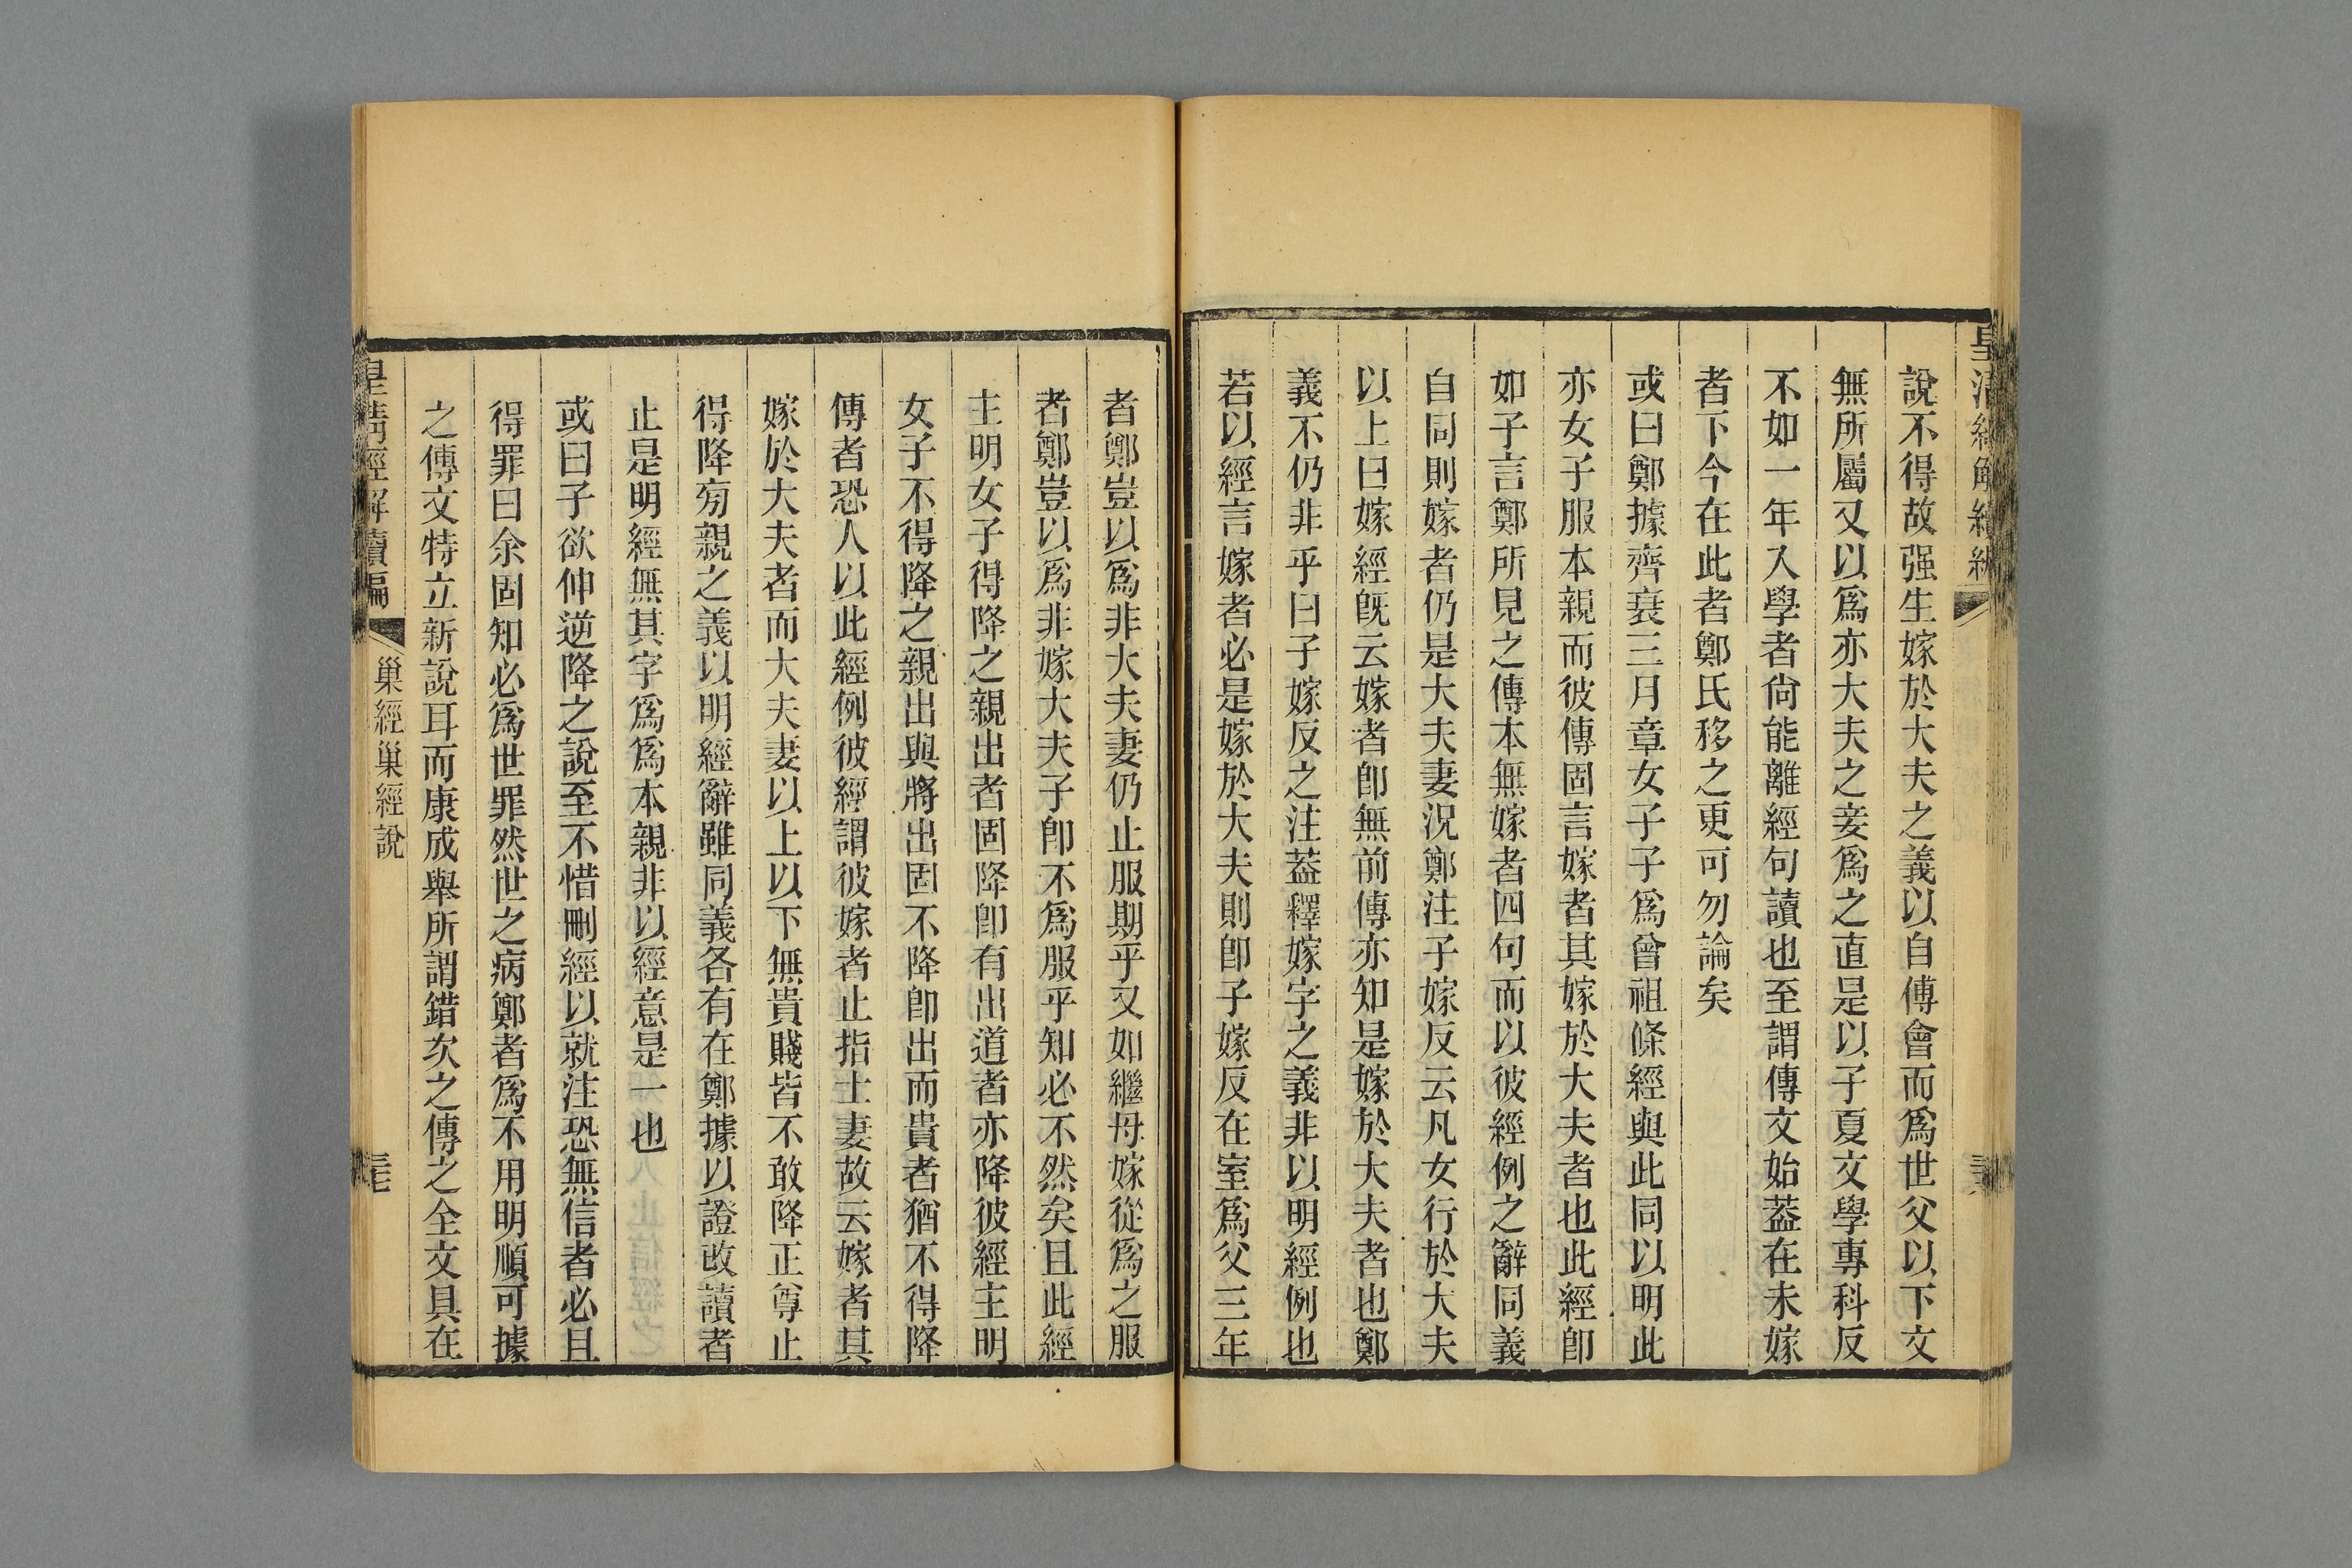 皇清經解續編
說不得故强生嫁於大夫之義以自傅會而爲世父以下文
無所屬又以爲亦大夫之妾爲之直是以子夏文學專科反
不如一年入學者尙能離經句讀也至謂傳文始葢在未嫁
者下今在此者鄭氏移之更可勿論矣
或曰鄭據齊衰三月章女子子爲曾祖條經與此同以明此
亦女子服本親而彼傳固言嫁者其嫁於大夫者也此經卽
如子言鄭所見之傳本無嫁者四句而以彼經例之辭同義
自同則嫁者仍是大夫妻況鄭注子嫁反云凡女行於大夫
以上曰嫁經旣云嫁者卽無前傳亦知是嫁於大夫者也鄭
義不仍非乎曰子嫁反之注葢釋嫁字之義非以明經例也
若以經言嫁者必是嫁於大夫則卽子嫁反在室爲父三年
者鄭豈以爲非大夫妻仍止服期乎又如繼母嫁從爲之服
者鄭豈以爲非嫁大夫子卽不爲服乎知必不然矣且此經
主明女子得降之親出者固降卽有出道者亦降彼經主明
女子不得降之親出與將出固不降卽出而貴者猶不得降
傳者恐人以此經例彼經謂彼嫁者止指士妻故云嫁者其
嫁於大夫者而大夫妻以上以下無貴賤皆不敢降正尊止
得降旁親之義以明經辭雖同義各有在鄭據以證改讀者
止是明經無其字爲爲本親非以經意是一也
或曰子欲伸逆降之說至不惜刪經以就注恐無信者必且
得罪曰余固知必爲世罪然世之病鄭者爲不用明順可據
之傳文特立新說耳而康成舉所謂錯次之傳之全文具在
皇淸經解續編
巢經巢經說